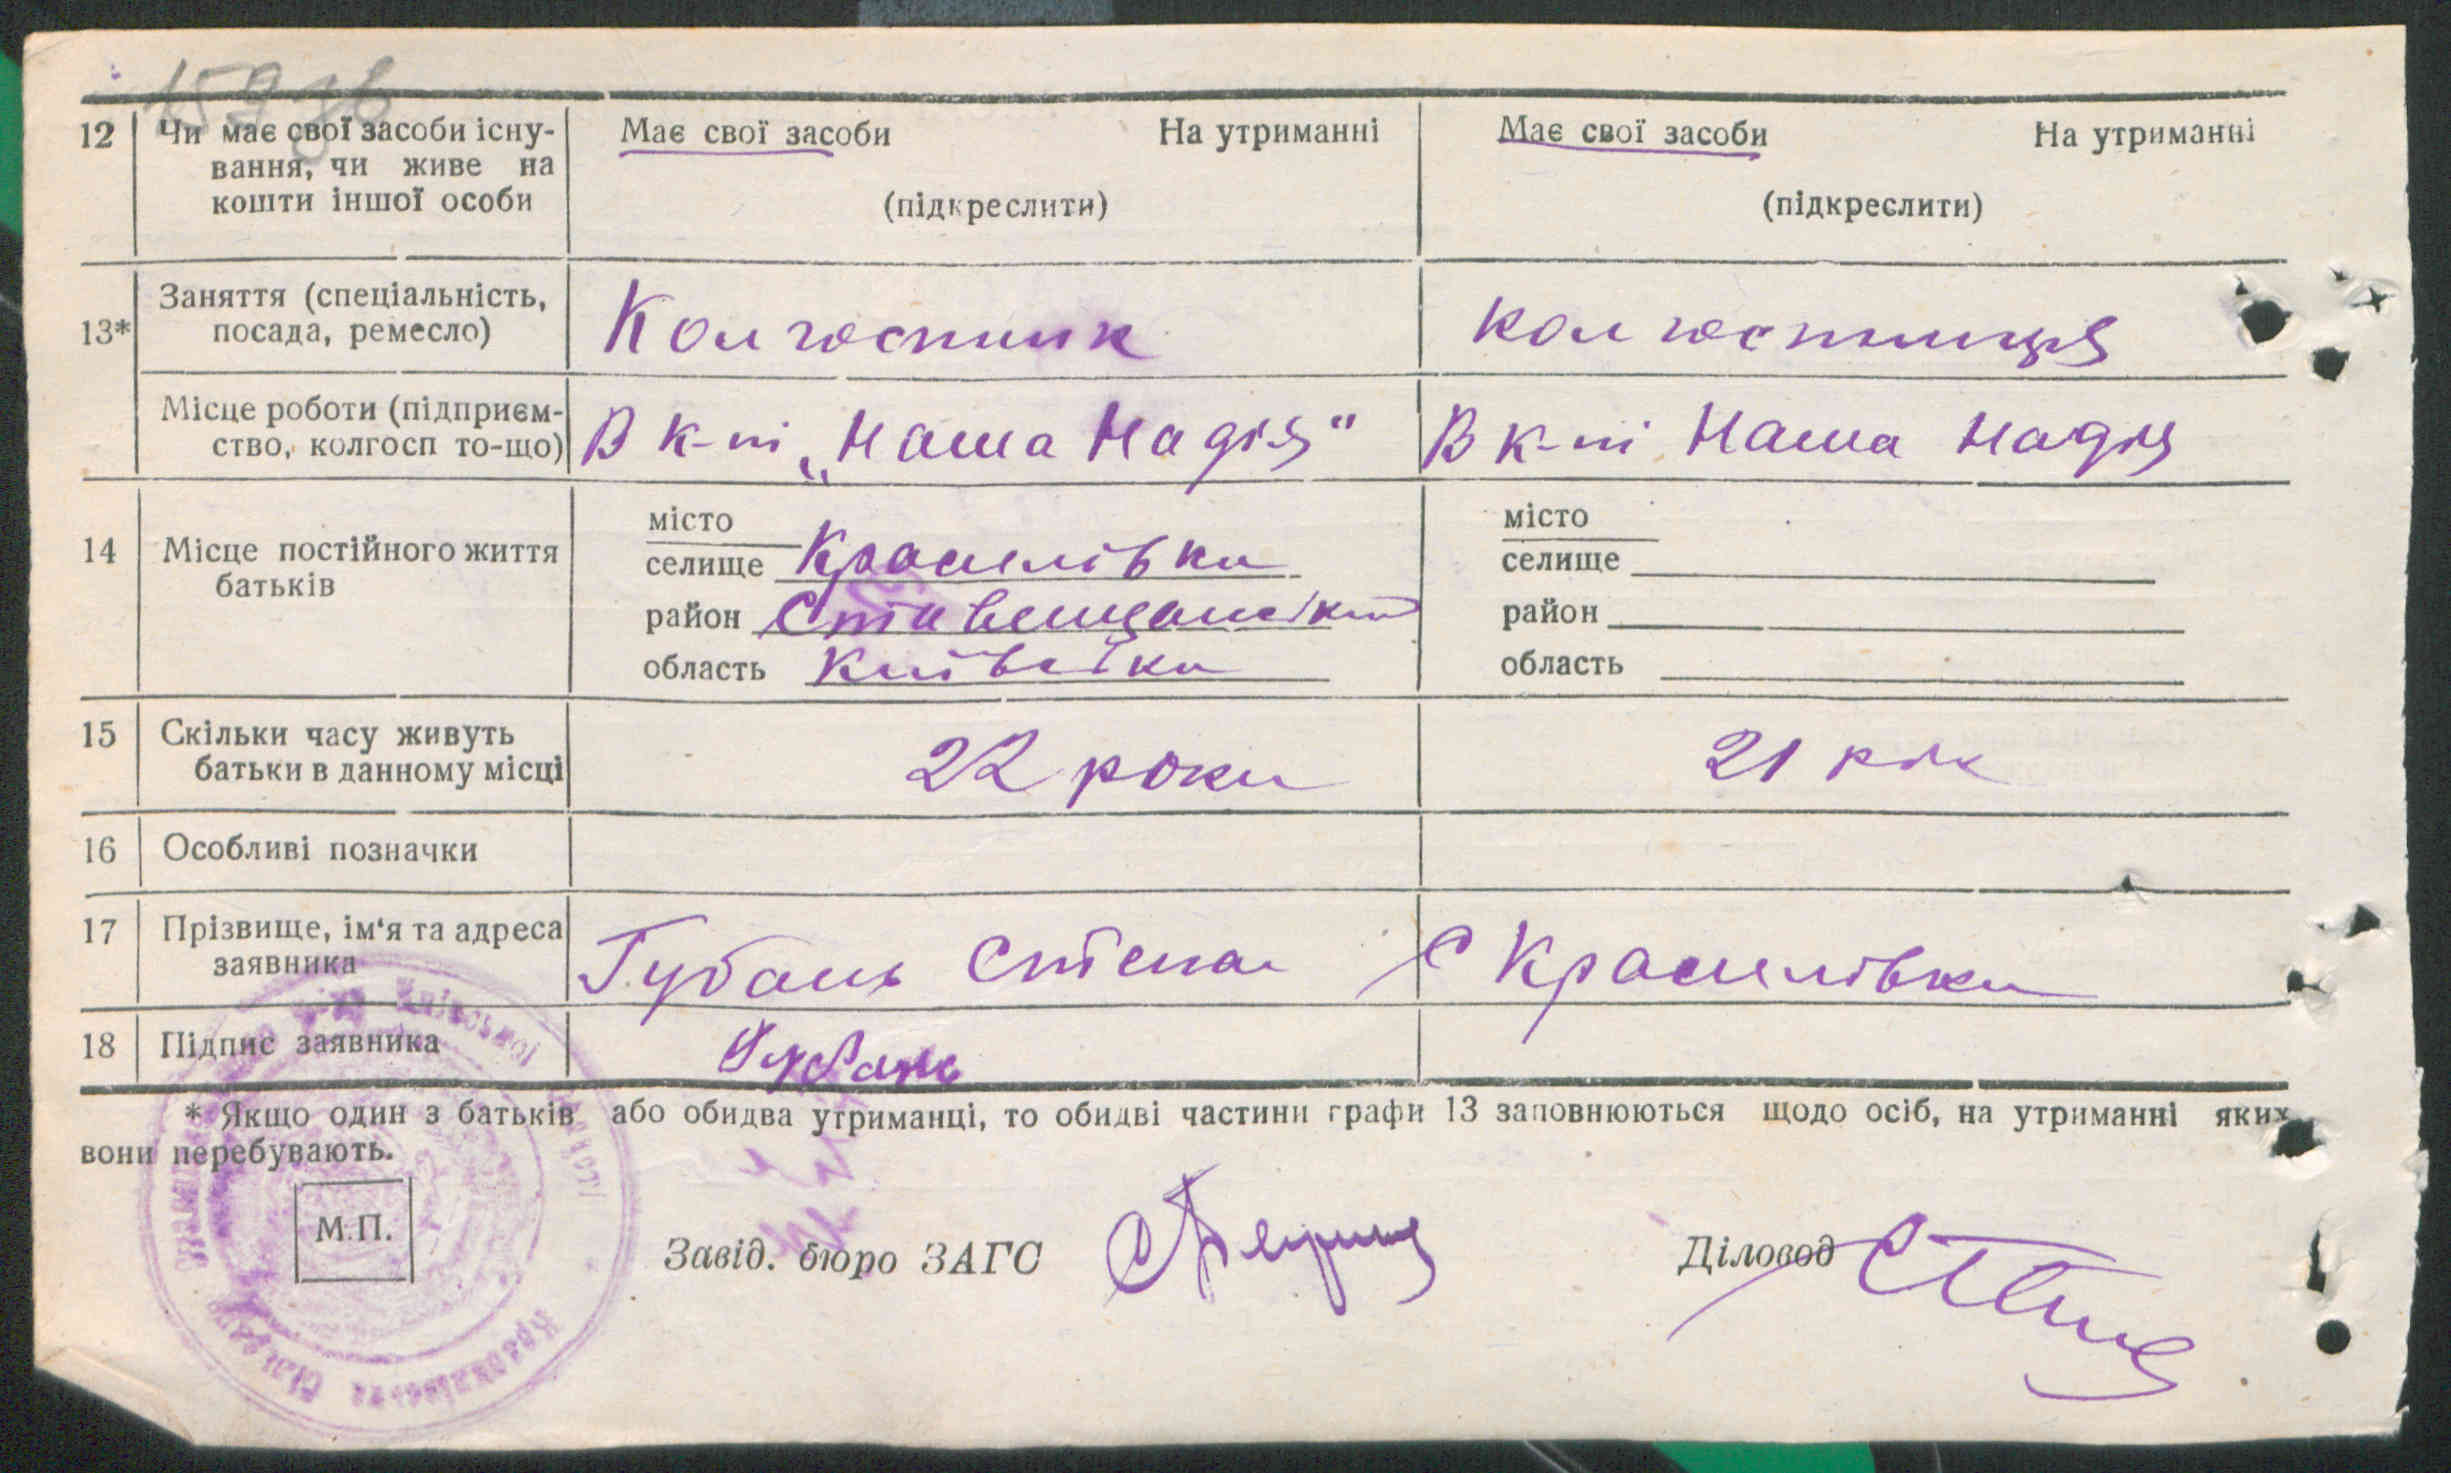 15936
12 Чи має свої засоби існу- Має свої засоби На утриманні Має свої засоби На утриманні
вання, чи живе на
кошти іншої особи (підкреслити) (підкреслити)
13* Заняття (спеціальність, Колгоспник колгоспниця
посада, ремесло)
Місце роботи (підприєм- В к-пі „Наша Надія" В к-пі Наша Надія
ство, колгосп то-що)
14 Місце постійного життя місто місто
батьків селище Красилівка селище
район Ставищанський район
область Київська область
15 Скільки часу живуть 22 роки 21 рік
батьки в данному місці
16 Особливі позначки
17 Прізвище, ім'я та адреса Губань Степан с Красилівка
заявника
18 Підпис заявника Губань
* Якщо один з батьків або обидва утриманці, то обидві частини графи 13 заповнюються щодо осіб, на утриманні яких
вони перебувають.
М.П.
Завід. бюро ЗАГС Діловод
Київської
Красилівська Сільрада